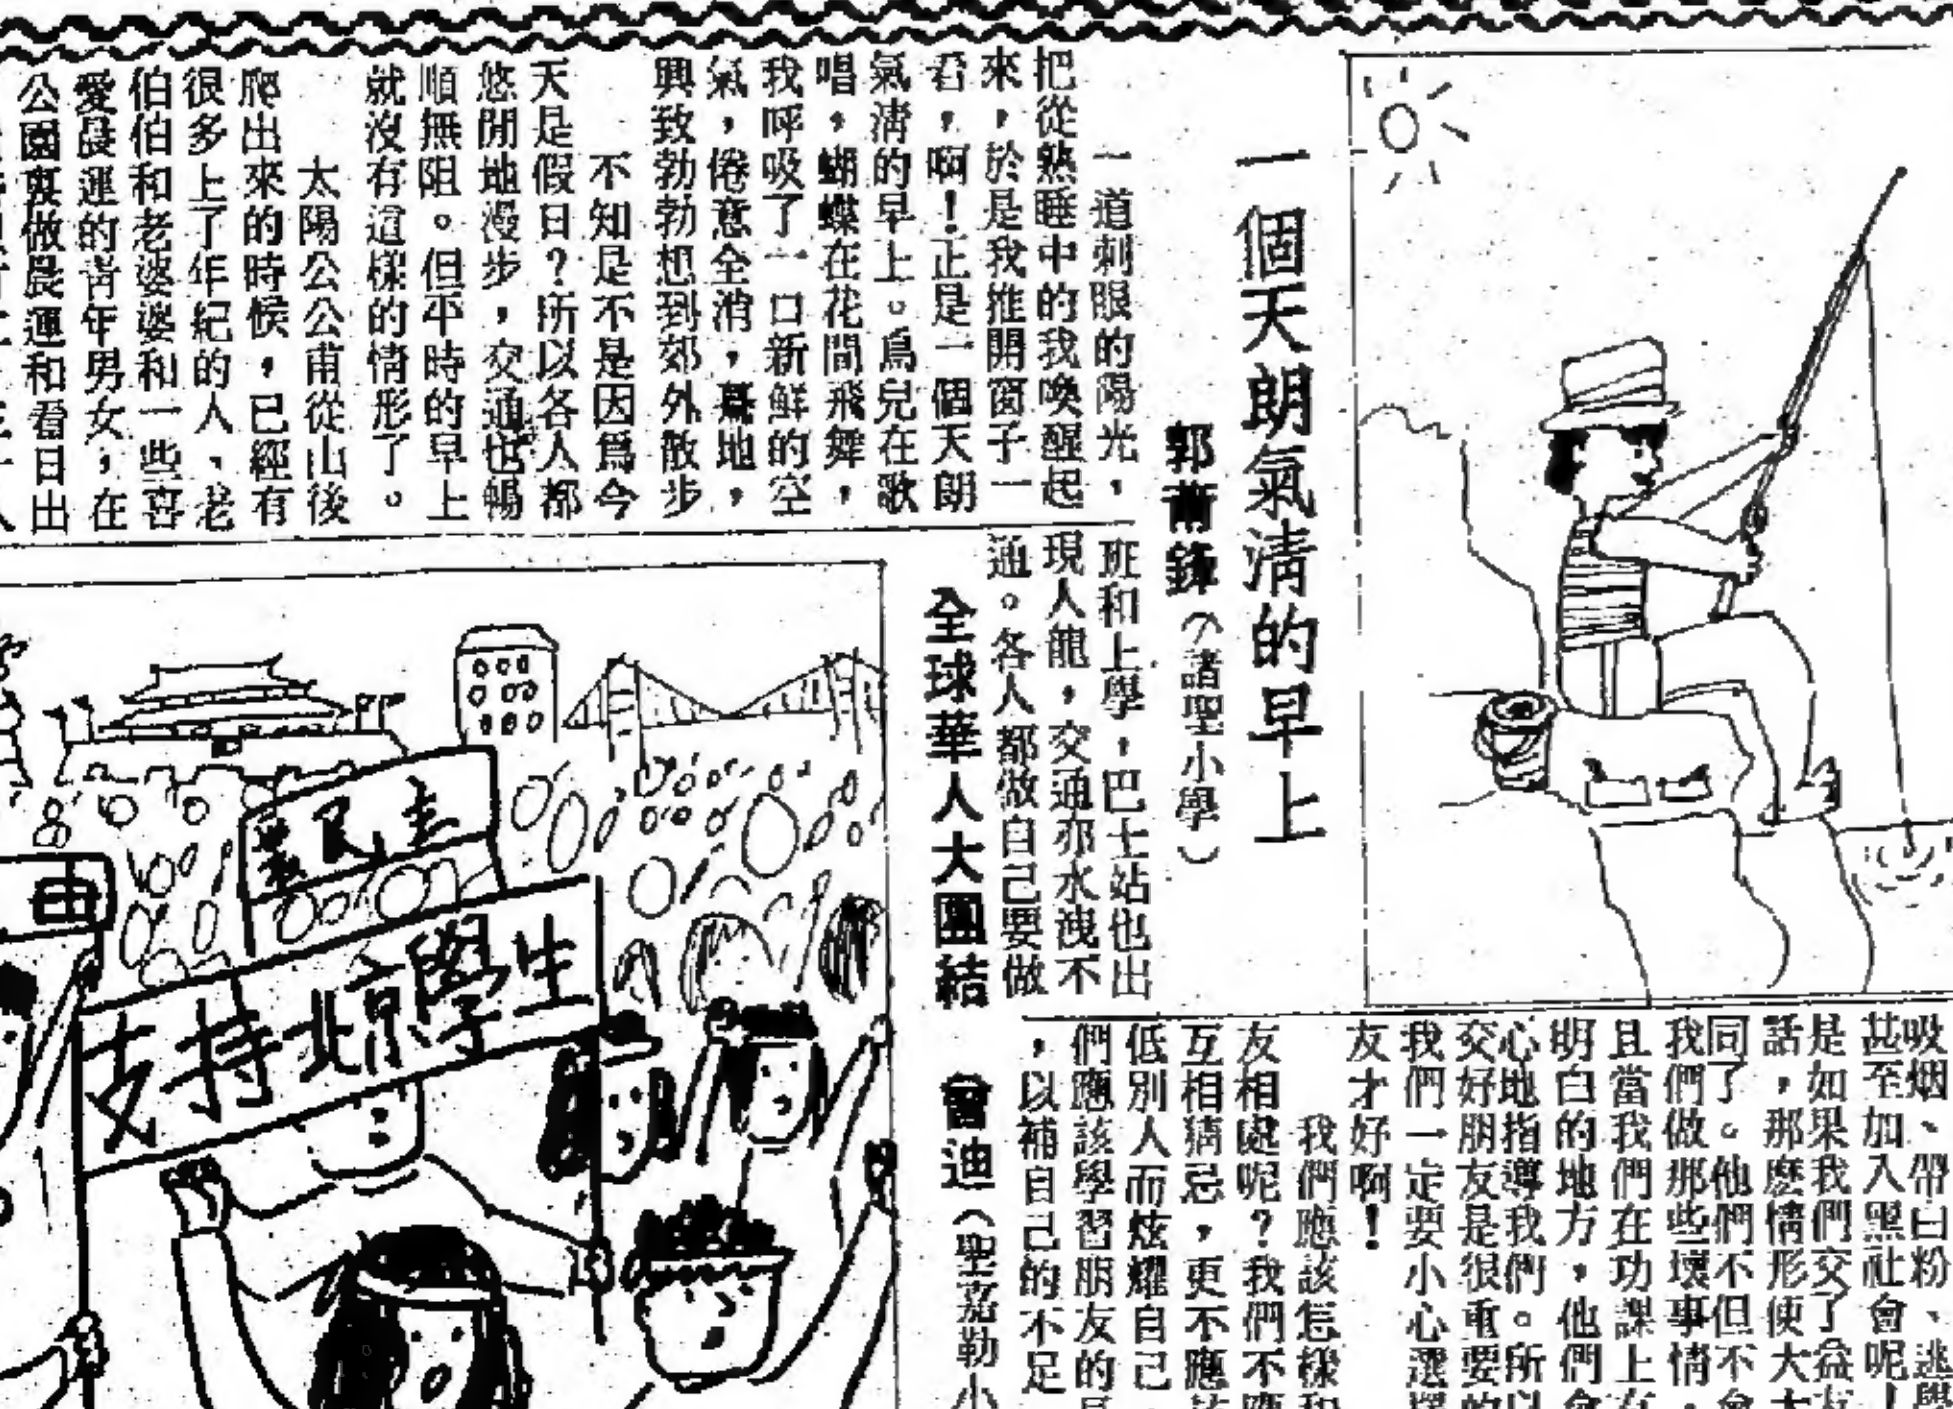 一個天朗氣清的早上
郭甫鋒（諸聖小學）
一道刺眼的陽光，
把從熟睡中的我喚醒起
來，於是我推開窗子一
看，啊！正是一個天朗
氣清的早上。鳥兒在歌
唱，蝴蝶在花間飛舞，
我呼吸了一口新鮮的空
氣，倦意全消，驀地，
興致勃勃想到郊外散步
不知是不是因爲今
天是假日？所以各人都
悠閒地漫步，交通也暢
順無阻。但平時的早上
就沒有這樣的情形了。
太陽公公甫從山後
爬出來的時候，已經有
很多上了年紀的人、老
伯伯和老婆婆和一些喜
愛晨運的靑年男女，在
公園裏做晨運和看日出
班和上學，巴士站也出
現人龍，交通亦水洩不
通。各人都做自己要做
全球華人大團結
曾迪（聖嘉勒小
要民主
由
支持北京學生
吸烟、帶白粉、逃學
甚至加入黑社會呢！
是如果我們交了益友
話，那麽情形便大大
同了。他們不但不會
我們做那些壞事情，
且當我們在功課上有
明白的地方，他們會
心地指導我們。所以
交好朋友是很重要的
我們一定要小心選擇
友才好啊！
我們應該怎樣和
友相處呢？我們不應
互相猜忌，更不應該
低別人而炫耀自己，
們應該學習朋友的長
，以補自己的不足